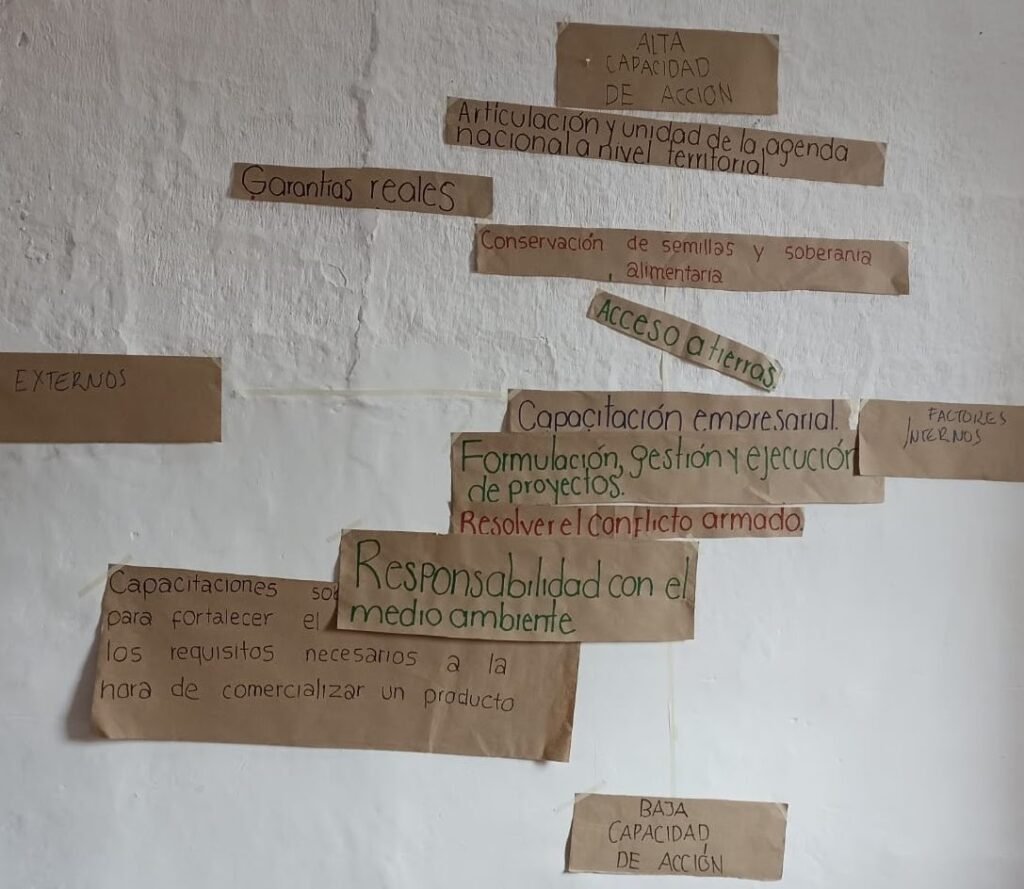 ALTA
CAPACIDAD
DE ACCIÓN
Articulación y unidad de la agenda
nacional a nivel territorial.
Garantías reales
Conservación de semillas y soberanía
alimentaria
Acceso a tierras.
EXTERNOS
FACTORES
INTERNOS
Capacitación empresarial.
Formulación, gestión y ejecución
de proyectos.
Resolver el conflicto armado.
Responsabilidad con el
medio ambiente
Capacitaciones
para fortalecer el
los requisitos necesarios a la
hora de comercializar un producto
BAJA
CAPACIDAD
DE ACCIÓN